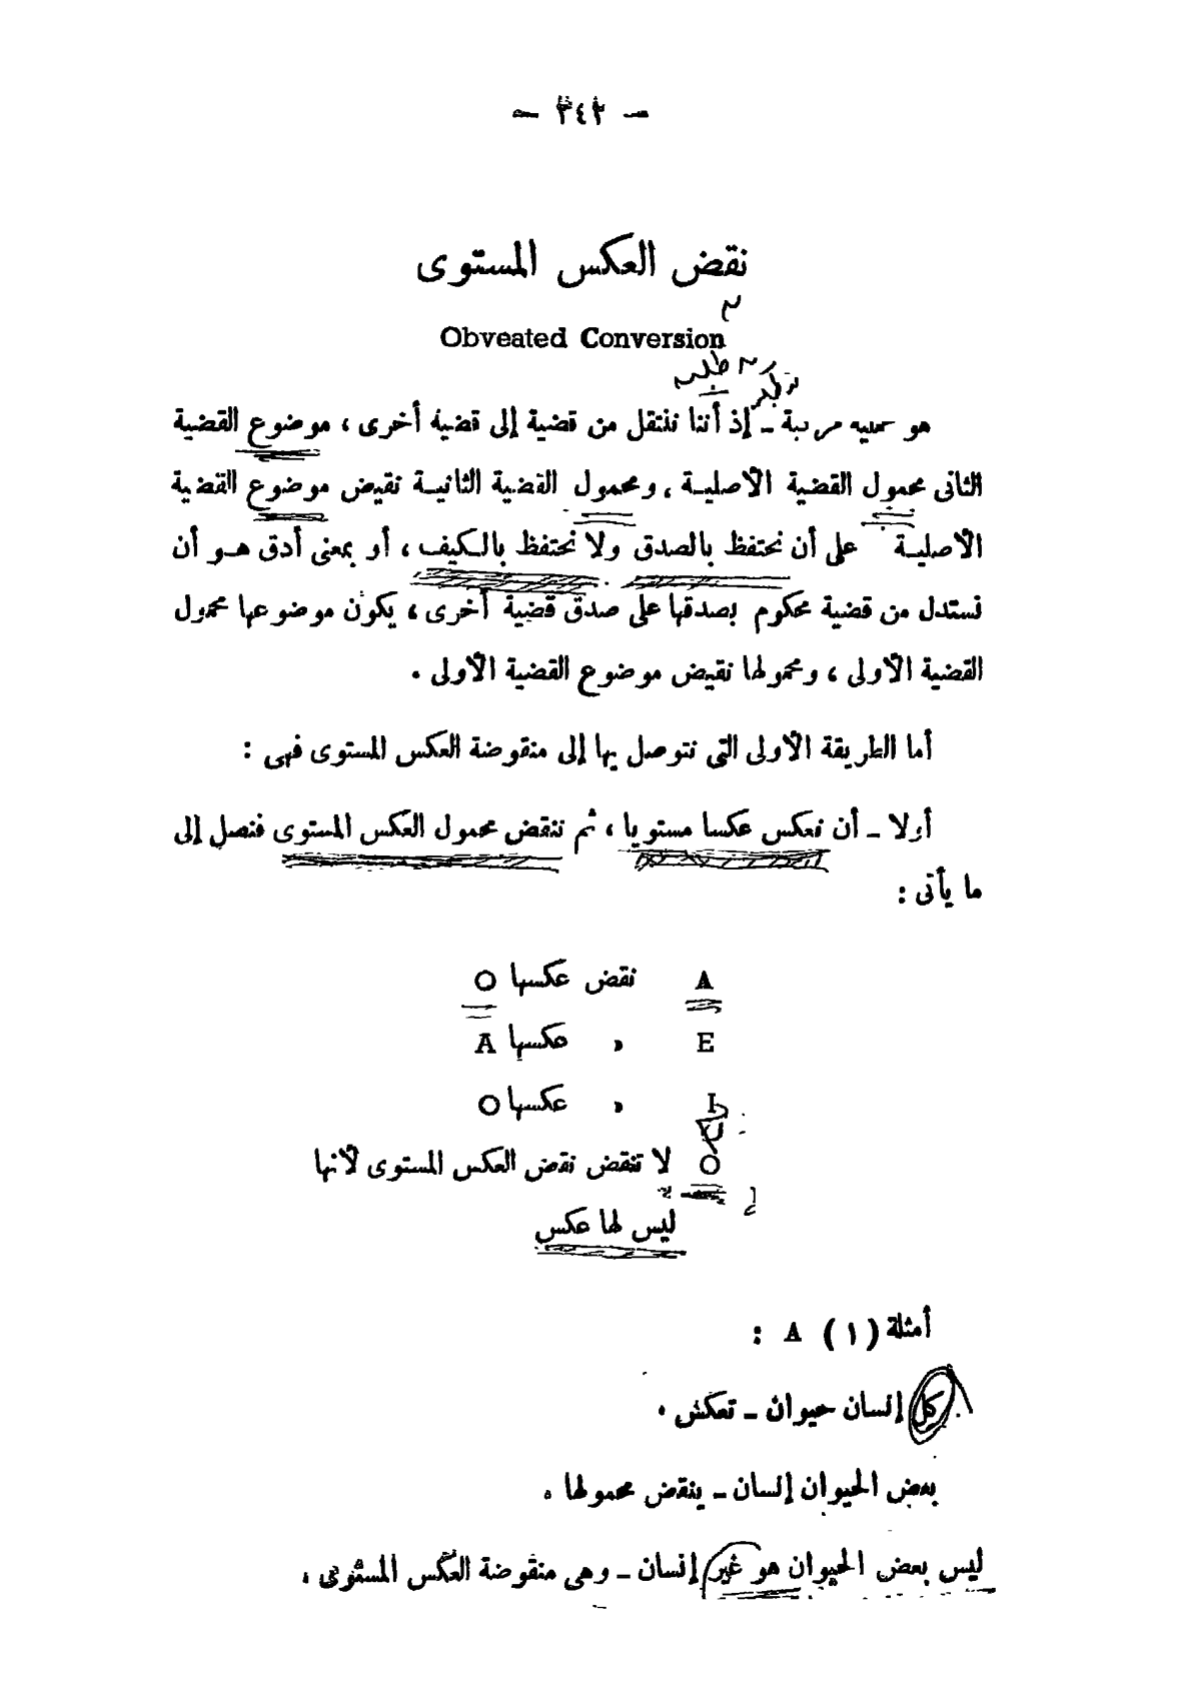 — ٣٤٢ —
نقض العكس المستوى
Obveated Conversion
هو عملية مركبة ــ إذ أننا ننتقل من قضية إلى قضية أخرى ، موضوع القضية
الثانى محمول القضية الأصليـة ، ومحمول القضية الثانيـة نقيض موضوع القضية
الأصليـة على أن نحتفظ بالصدق ولا نحتفظ بالكيف ، أو بمعنى أدق هـو أن
نستدل من قضية محكوم بصدقها على صدق قضية أخرى ، يكون موضوعها محمول
القضية الأولى ، ومحمولها نقيض موضوع القضية الأولى .
أما الطريقة الأولى التى نتوصل بها إلى منقوضة العكس المستوى فهى :
أولا ــ أن نعكس عكسا مستويا ، ثم ننقض محمول العكس المستوى فنصل إلى
ما يأتى :
A نقض عكسها O
E » عكسها A
I » عكسها O
O لا تنقض نقض العكس المستوى لأنها
ليس لها عكس
أمثلة ( ١ ) A :
كل إنسان حيوان ــ تعكس .
بعض الحيوان إنسان ــ ينقض محمولها .
ليس بعض الحيوان هو غير إنسان ــ وهى منقوضة العكس المستوى .